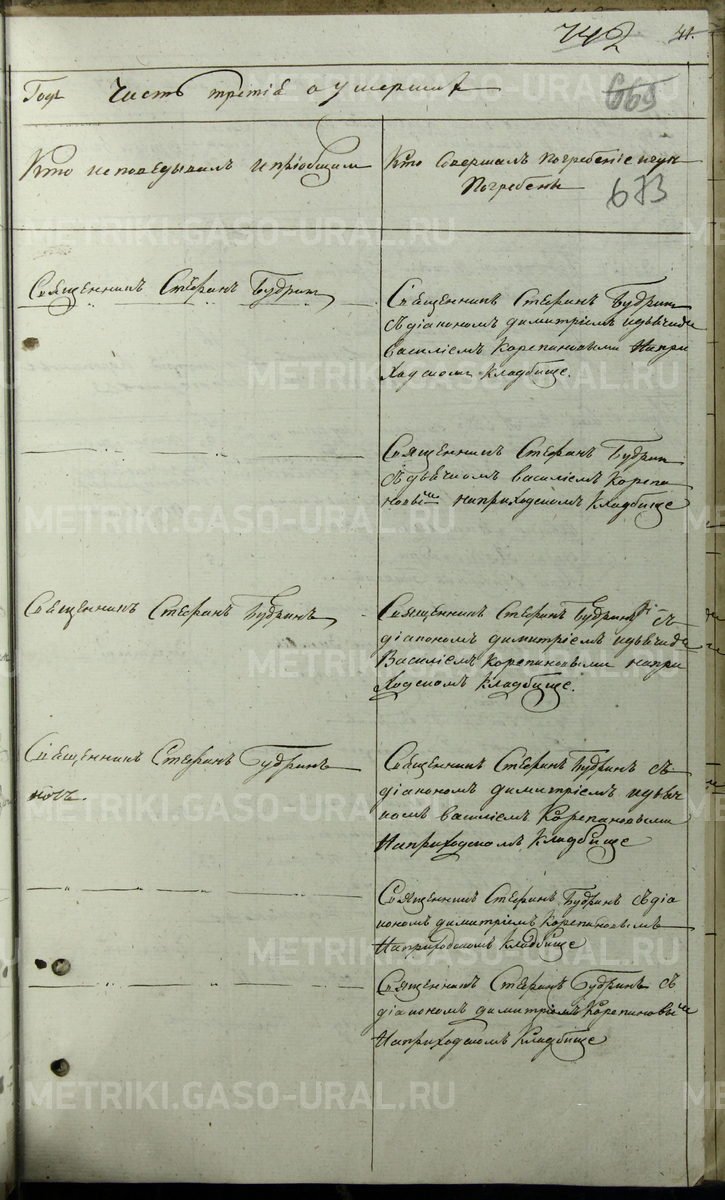 742
41.
Годъ Часть третія о умершихъ
665
Кто исповедывалъ и пріобщалъ
Кто Совершалъ погребеніе игдѣ
Погребены
673
Священникъ Стефанъ Будринъ
Священникъ Стефанъ Будринъ
съ діакономъ димитріемъ идьячкомъ
василіемъ Корепановыми Напри
Ходскомъ кладбище.
Священникъ Стефанъ Будрин
съ дьячкомъ василіемъ Корепа
новымъ наприходскомъ Кладбище
Священникъ Стефанъ Будринъ
Священникъ Стефанъ Будринъ съ
діакономъ димитріемъ идьячкомъ
Василіемъ Корепановыми напри
Ходскомъ кладбище.
Священникъ Стефанъ Будринъ
Священникъ Стефанъ Будринъ съ
діакономъ димитріемъ идьяч
комъ василіемъ Корепановыми
Наприходскомъ Кладбище
Священникъ Стефанъ Будринъ съдіа
кономъ димитріемъ Корепановымъ
Наприходскомъ кладбище
Священникъ Стефанъ Будринъ съ
діакономъ димитріемъ Корепановымъ
Наприходскомъ Кладбище
METRIKI.GASO-URAL.RU